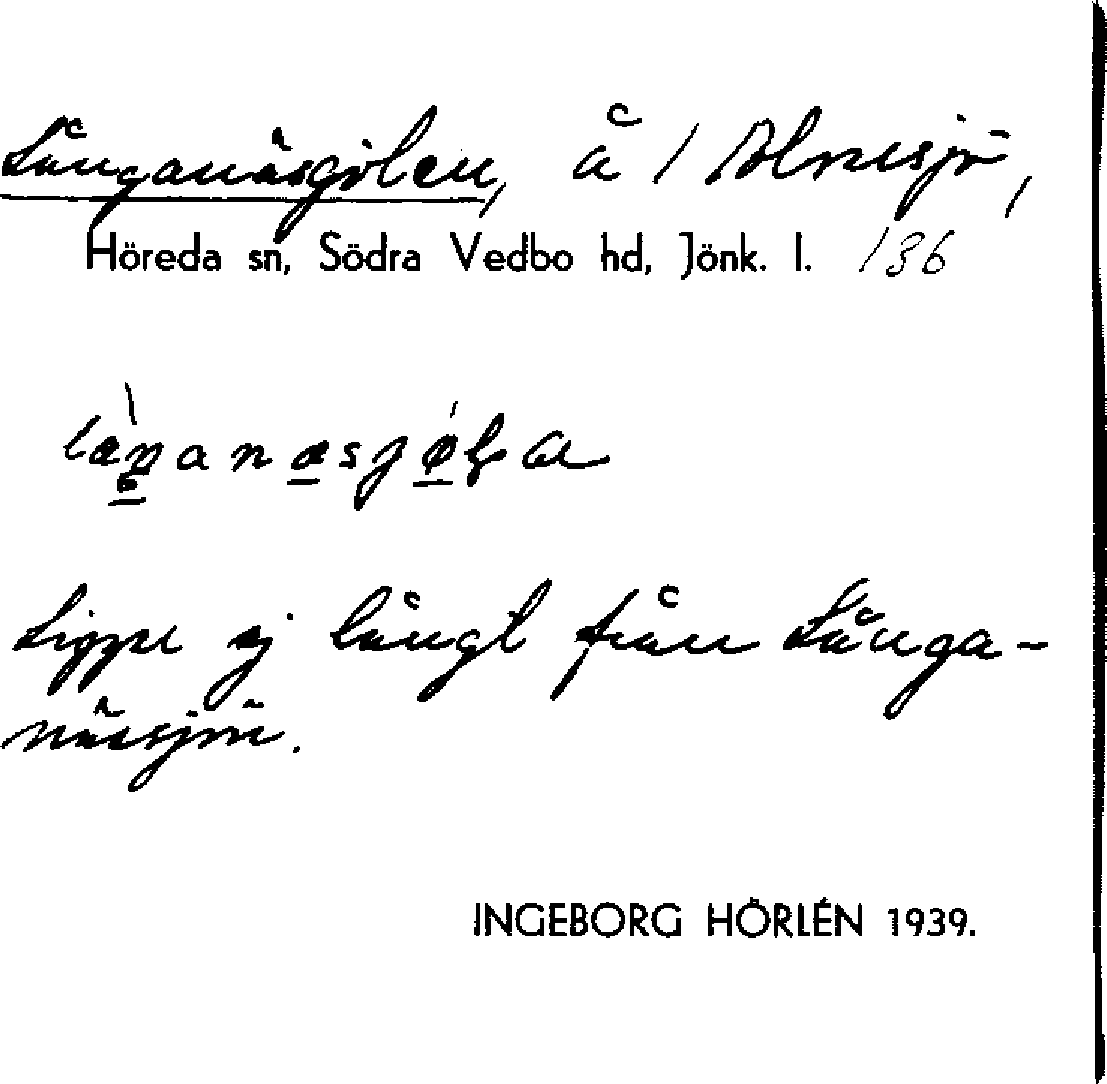 Långanäsgölen, å 1 Olnesjö,
Höreda sn, Södra Vedbo hd, Jönk. l. 136
Ligger ej långt från Långa-
näsesjön.
INGEBORG HÖRLÉN 1939.